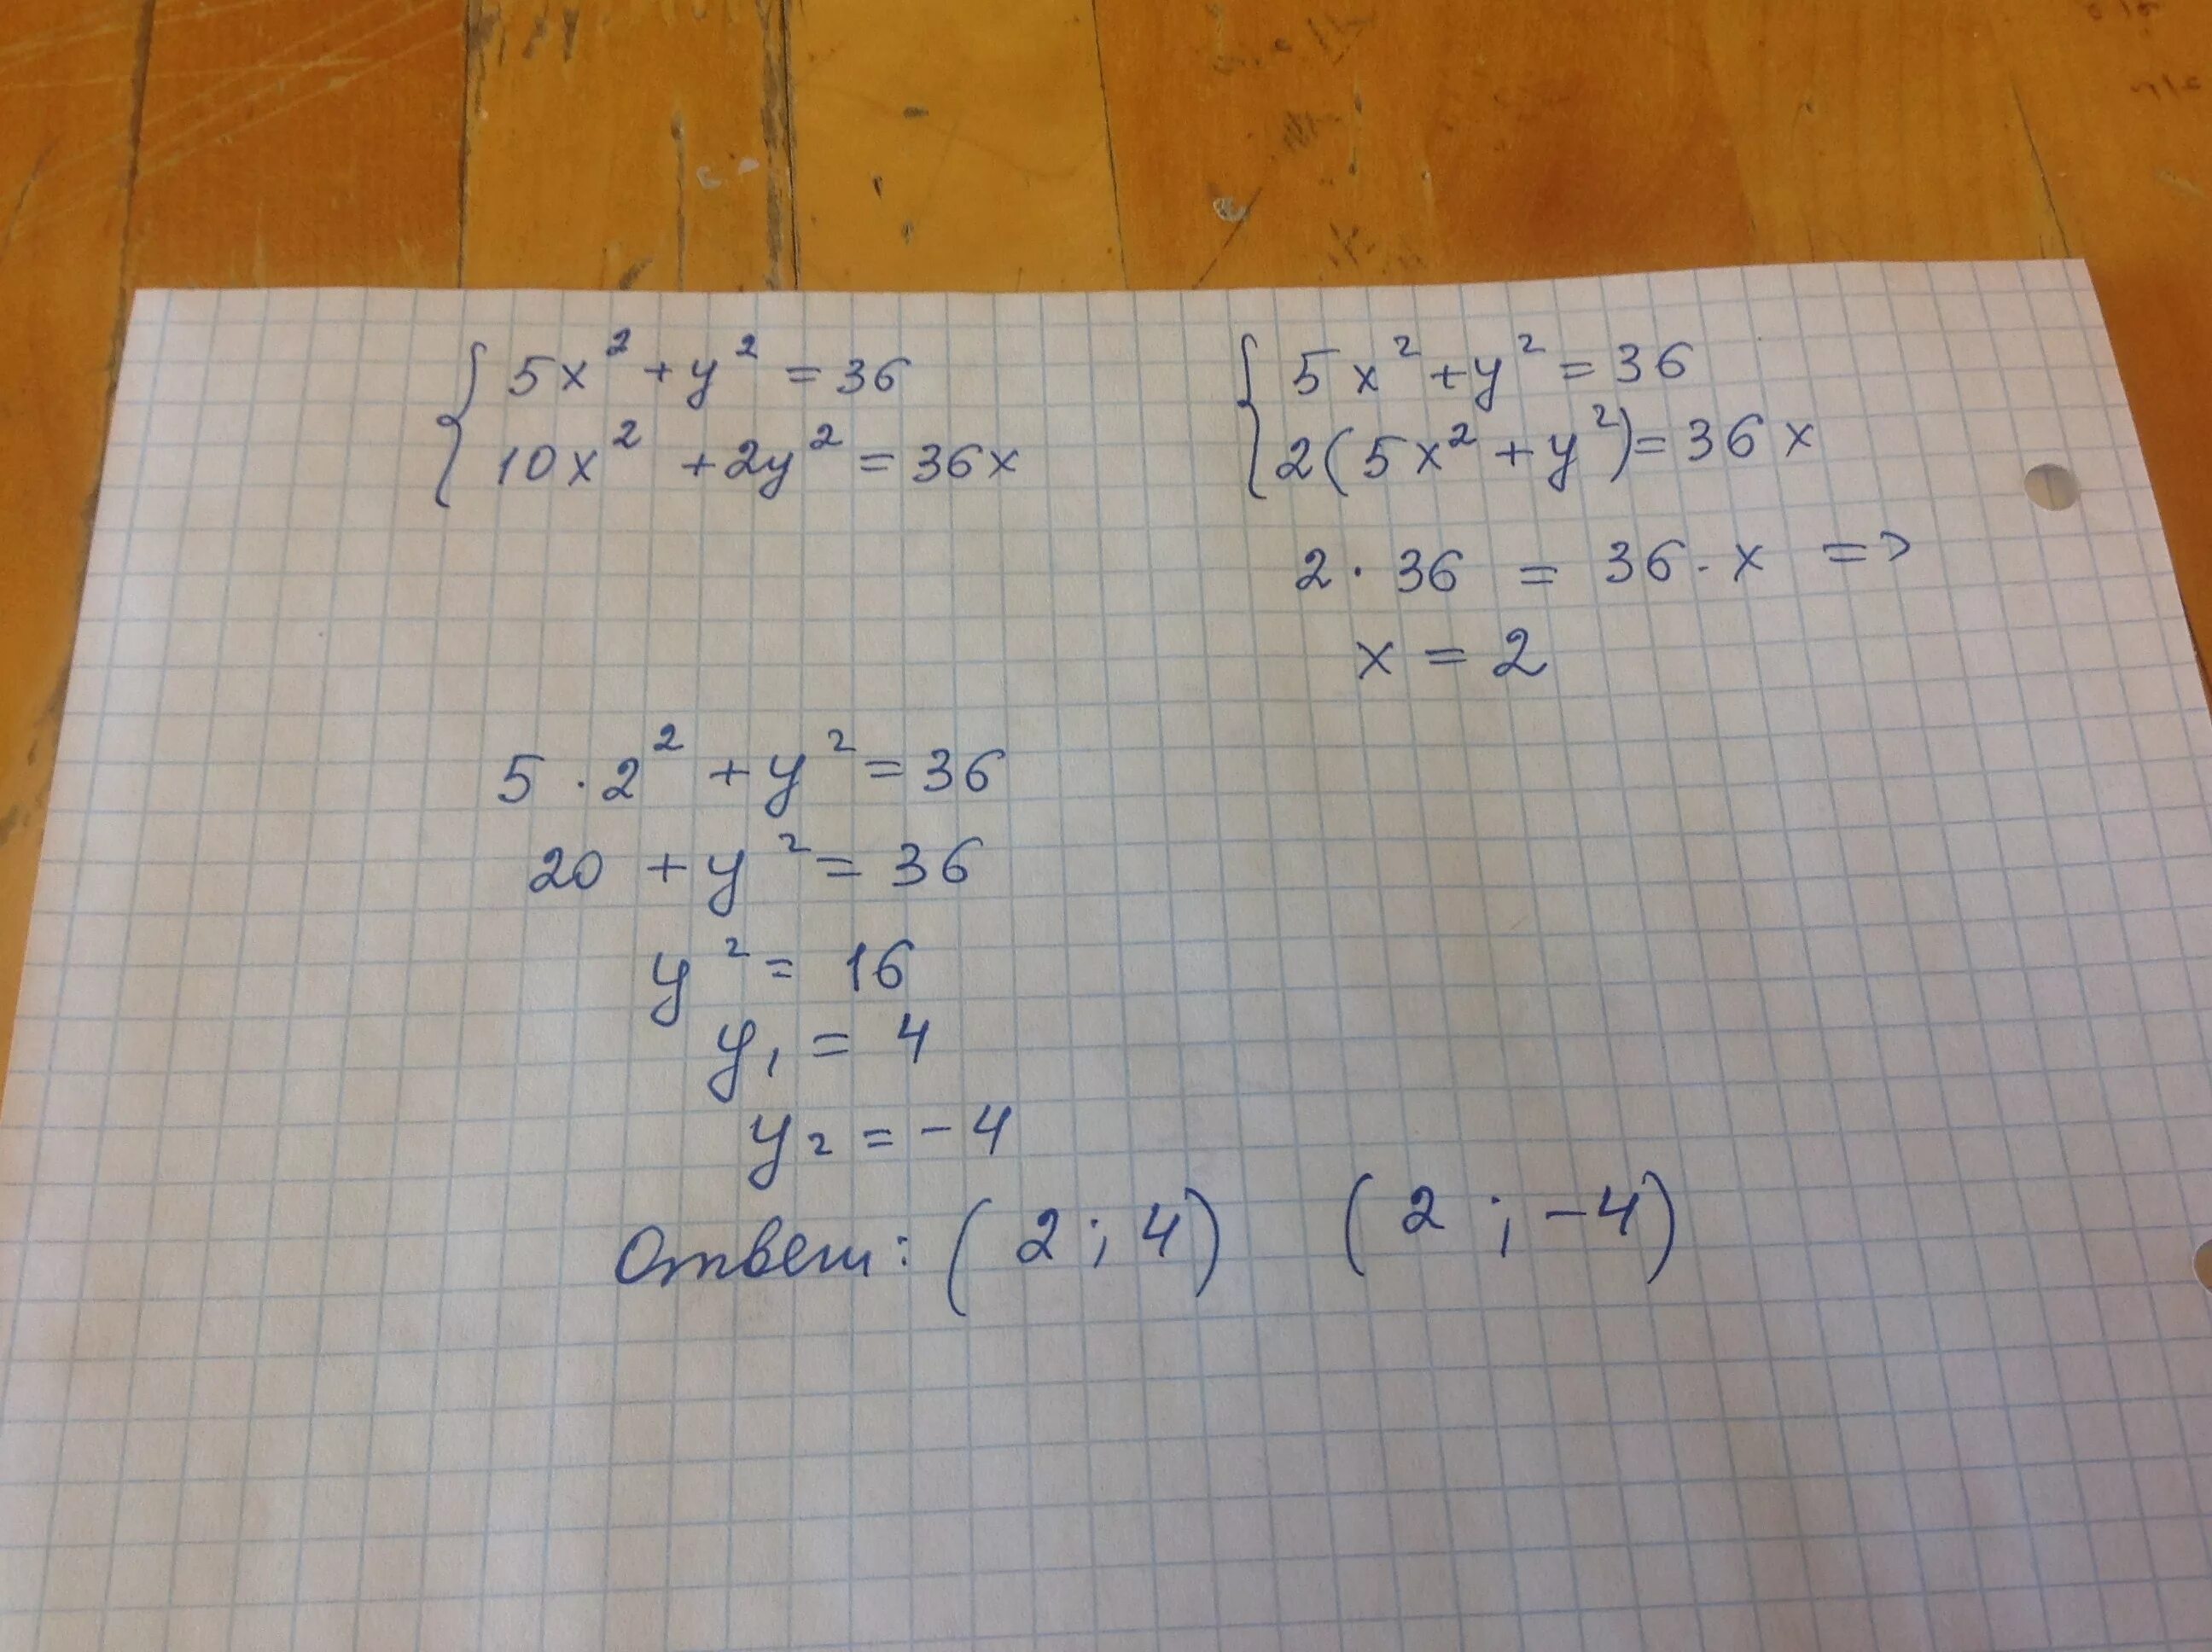 5x² + y² = 36
10x² + 2y² = 36x
5x² + y² = 36
2(5x² + y²) = 36x
2 · 36 = 36 · x =>
x = 2
5 · 2² + y² = 36
20 + y² = 36
y² = 16
y₁ = 4
y₂ = -4
Ответ: (2; 4) (2; -4)